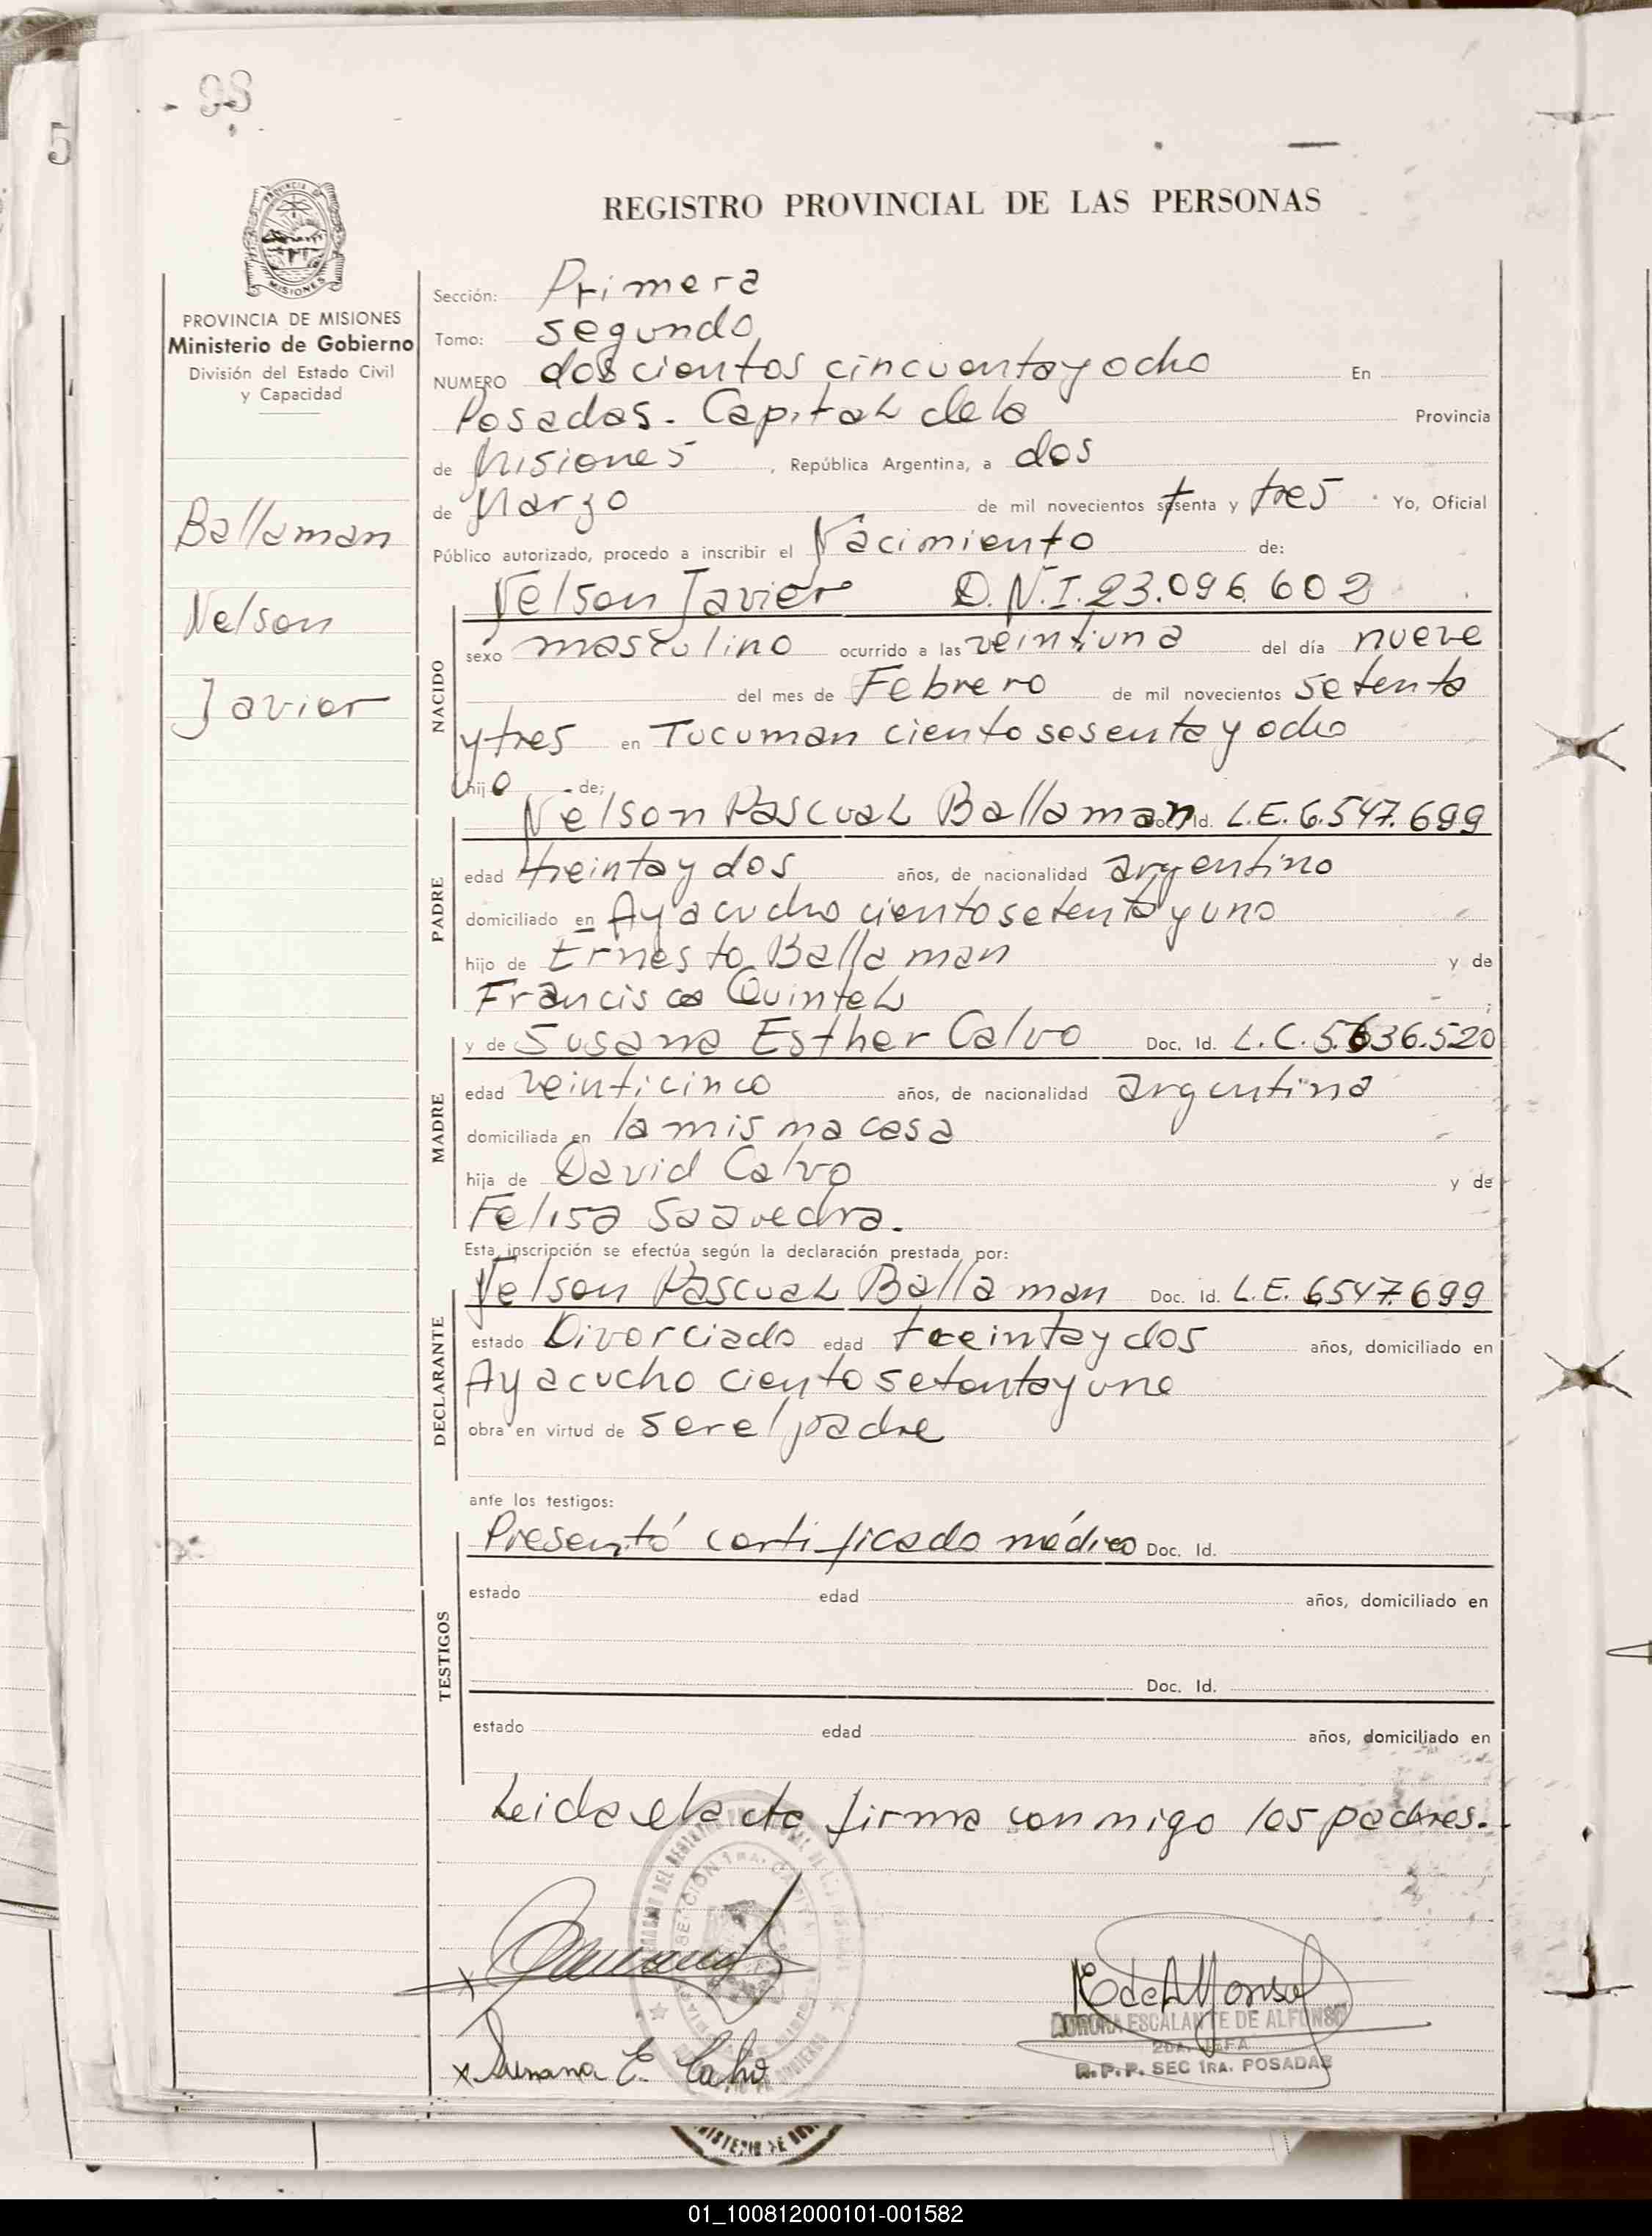 98
5
PROVINCIA DE MISIONES
Ministerio de Gobierno
División del Estado Civil
y Capacidad
Ballaman
Nelson
Javier
REGISTRO PROVINCIAL DE LAS PERSONAS
Sección: Primera
Tomo: segundo
NUMERO doscientos cincuenta y ocho En
Posadas. Capital de la Provincia
de Misiones, República Argentina, a dos
de Marzo de mil novecientos setenta y tres Yo, Oficial
Público autorizado, procedo a inscribir el Nacimiento de:
NACIDO
Nelson Javier D.N.I. 23.096.602
sexo masculino ocurrido a las veintiuna del día nueve
del mes de Febrero de mil novecientos setenta
y tres en Tucuman ciento sesenta y ocho
hijo de;
PADRE
Nelson Pascual Ballaman Doc. Id. L.E. 6.547.699
edad treinta y dos años, de nacionalidad argentino
domiciliado en Ayacucho ciento setenta y uno
hijo de Ernesto Ballaman y de
Francisca Quintel ;
MADRE
y de Susana Esther Calvo Doc. Id. L.C. 5.636.520
edad veinticinco años, de nacionalidad argentina
domiciliada en la misma casa
hija de David Calvo y de
Felisa Saavedra.
Esta inscripción se efectúa según la declaración prestada por:
DECLARANTE
Nelson Pascual Ballaman Doc. Id. L.E. 6547.699
estado Divorciado edad treinta y dos años, domiciliado en
Ayacucho ciento setenta y uno
obra en virtud de ser el padre
ante los testigos:
TESTIGOS
Presentó certificado médico Doc. Id.
estado edad años, domiciliado en
Doc. Id.
estado edad años, domiciliado en
Leida el acta firma conmigo los padres.
x
x Susana E. Calvo
E de Alfonso
AURORA ESCALANTE DE ALFONSO
2DA. JEFA
R.P.P. SEC 1RA. POSADAS
01_100812000101-001582